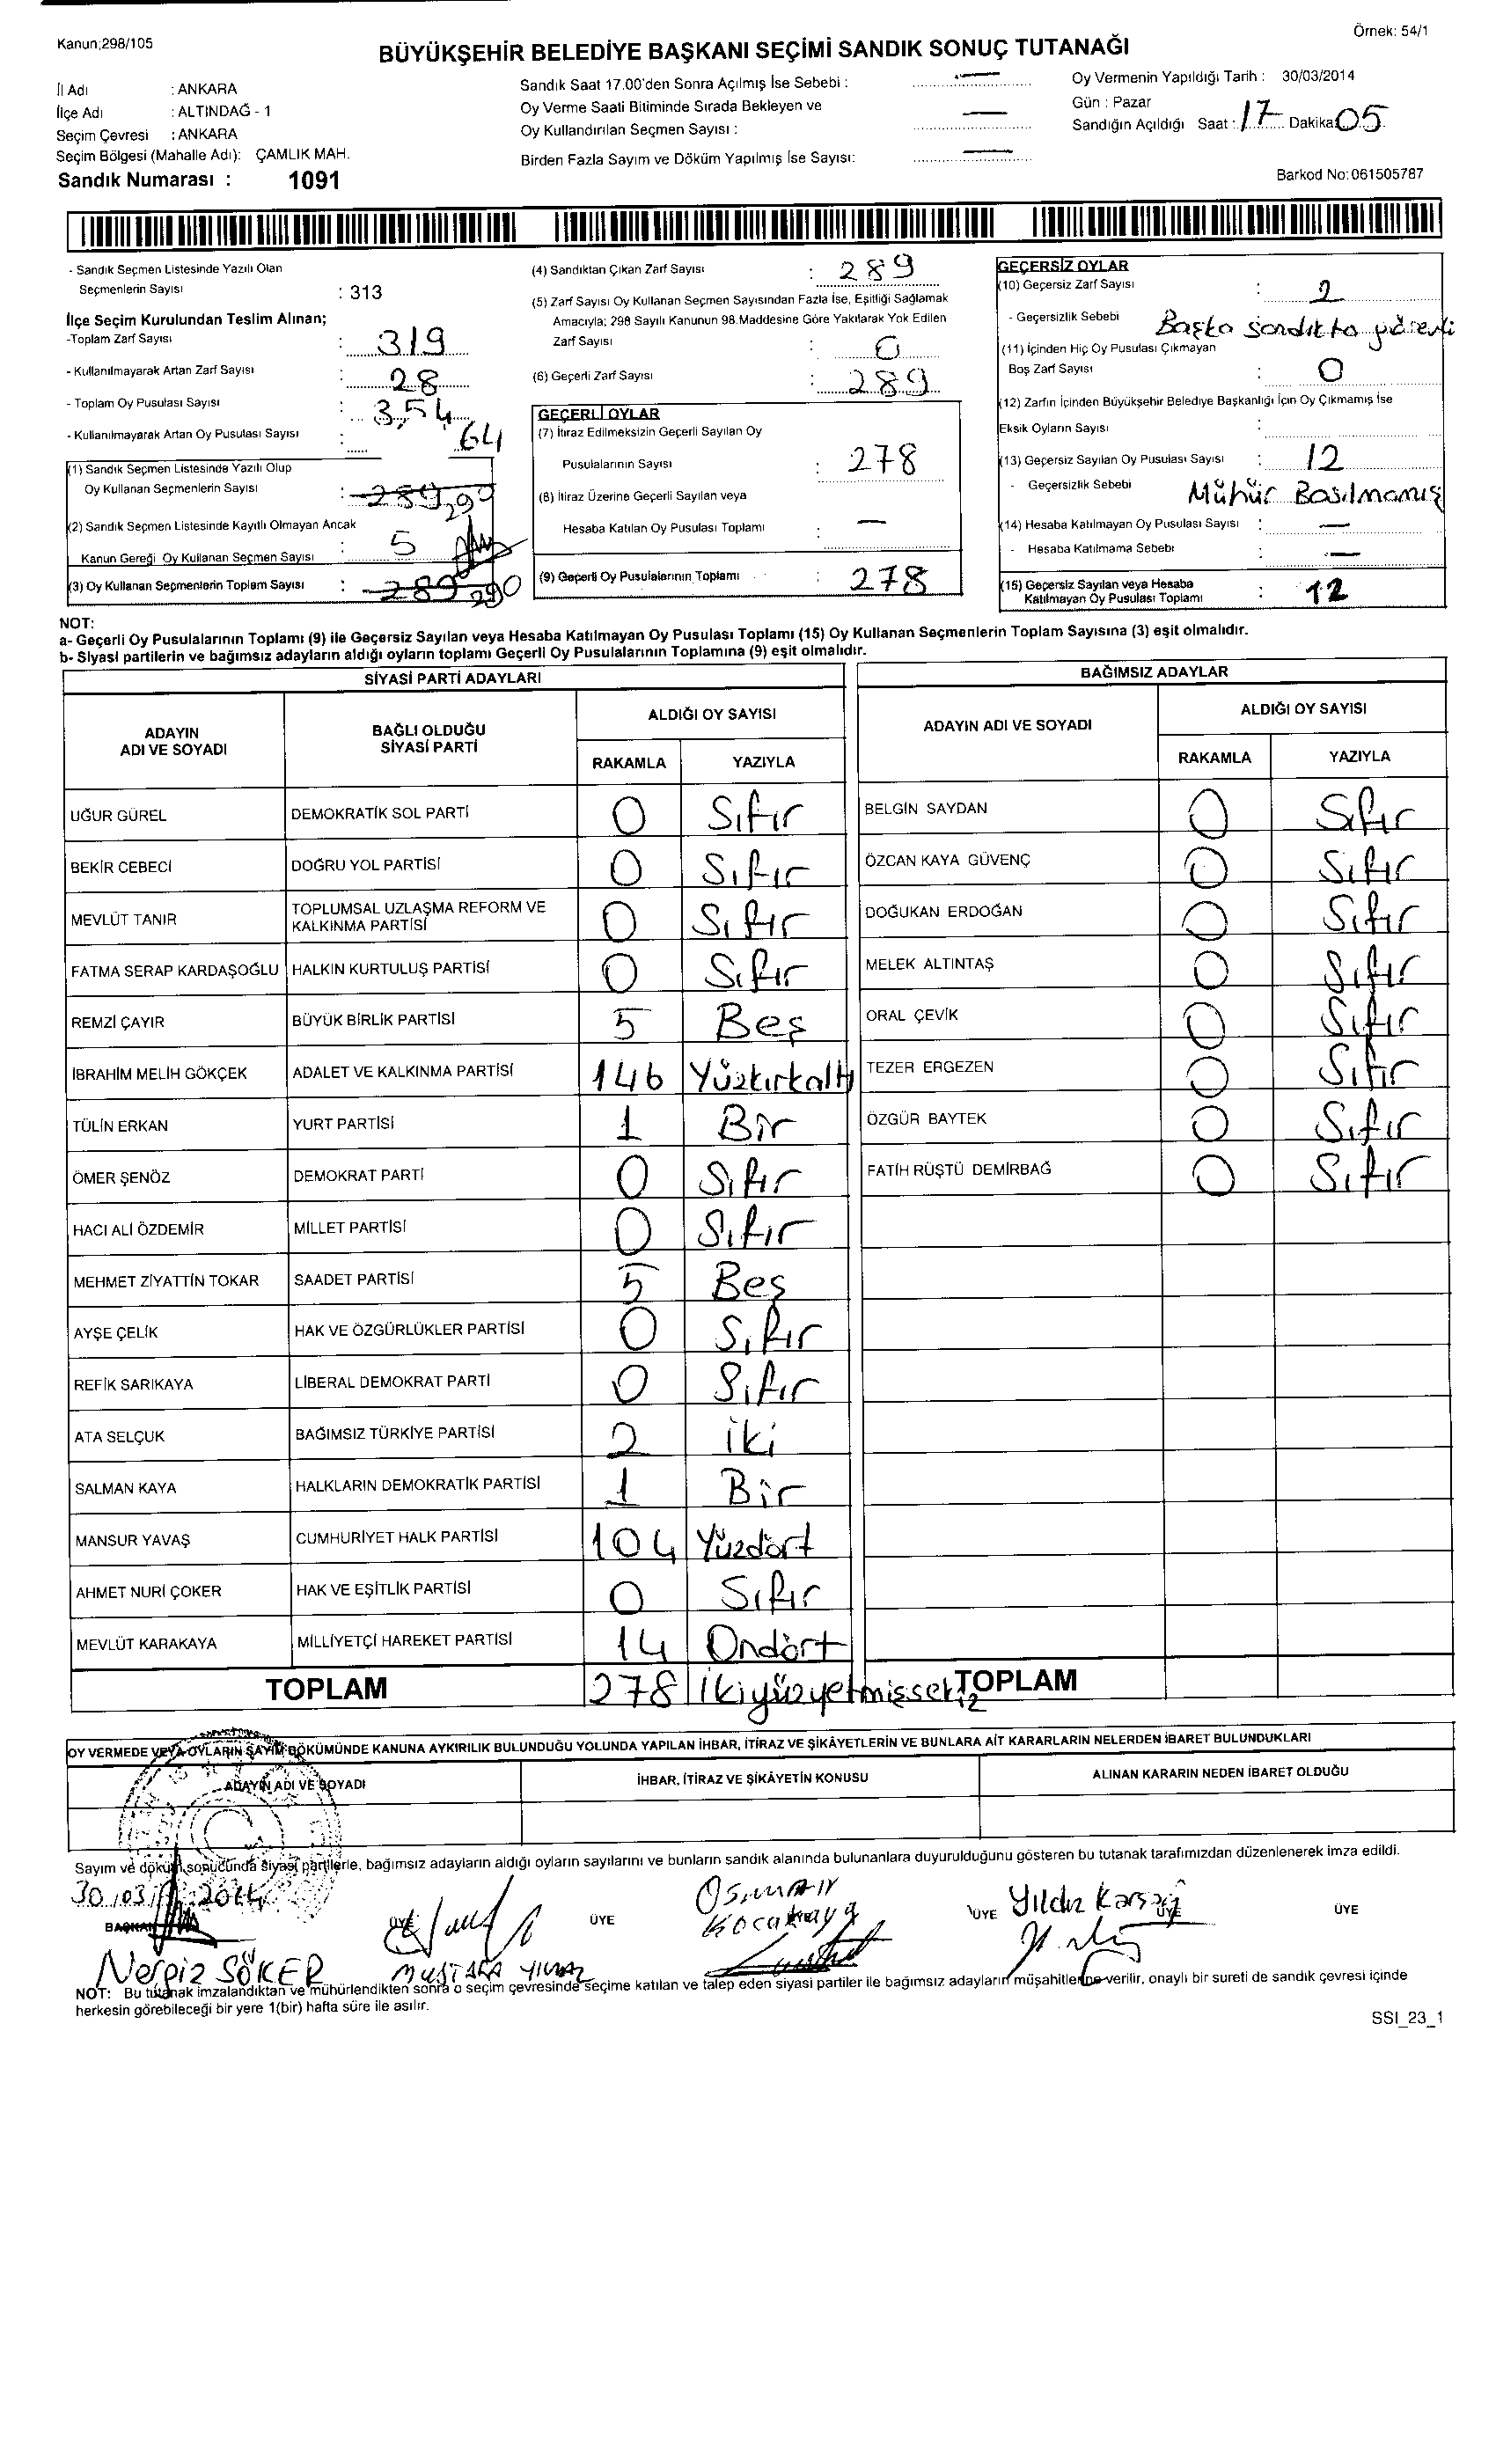 Kanun;298/105
Örnek: 54/1
BÜYÜKŞEHİR BELEDİYE BAŞKANI SEÇİMİ SANDIK SONUÇ TUTANAĞI
İl Adı : ANKARA
İlçe Adı : ALTINDAĞ - 1
Seçim Çevresi : ANKARA
Seçim Bölgesi (Mahalle Adı): ÇAMLIK MAH.
Sandık Numarası : 1091
Sandık Saat 17.00'den Sonra Açılmış İse Sebebi : —
Oy Verme Saati Bitiminde Sırada Bekleyen ve
Oy Kullandırılan Seçmen Sayısı : —
Birden Fazla Sayım ve Döküm Yapılmış İse Sayısı: —
Oy Vermenin Yapıldığı Tarih : 30/03/2014
Gün : Pazar
Sandığın Açıldığı Saat : 17 Dakika: 05
Barkod No: 061505787
- Sandık Seçmen Listesinde Yazılı Olan
Seçmenlerin Sayısı : 313
İlçe Seçim Kurulundan Teslim Alınan;
-Toplam Zarf Sayısı : 319
- Kullanılmayarak Artan Zarf Sayısı : 28
- Toplam Oy Pusulası Sayısı : 354
- Kullanılmayarak Artan Oy Pusulası Sayısı : 64
(1) Sandık Seçmen Listesinde Yazılı Olup
Oy Kullanan Seçmenlerin Sayısı : 289
(2) Sandık Seçmen Listesinde Kayıtlı Olmayan Ancak
Kanun Gereği Oy Kullanan Seçmen Sayısı : 5
(3) Oy Kullanan Seçmenlerin Toplam Sayısı : 289 290
(4) Sandıktan Çıkan Zarf Sayısı : 289
(5) Zarf Sayısı Oy Kullanan Seçmen Sayısından Fazla İse, Eşitliği Sağlamak
Amacıyla; 298 Sayılı Kanunun 98.Maddesine Göre Yakılarak Yok Edilen
Zarf Sayısı : 0
(6) Geçerli Zarf Sayısı : 289
GEÇERLİ OYLAR
(7) İtiraz Edilmeksizin Geçerli Sayılan Oy
Pusulalarının Sayısı : 278
(8) İtiraz Üzerine Geçerli Sayılan veya
Hesaba Katılan Oy Pusulası Toplamı : —
(9) Geçerli Oy Pusulalarının Toplamı : 278
GEÇERSİZ OYLAR
(10) Geçersiz Zarf Sayısı : 2
- Geçersizlik Sebebi Başka sandıkta görevli
(11) İçinden Hiç Oy Pusulası Çıkmayan
Boş Zarf Sayısı : 0
(12) Zarfın İçinden Büyükşehir Belediye Başkanlığı İçin Oy Çıkmamış İse
Eksik Oyların Sayısı :
(13) Geçersiz Sayılan Oy Pusulası Sayısı : 12
- Geçersizlik Sebebi Mühür Basılmamış
(14) Hesaba Katılmayan Oy Pusulası Sayısı : —
- Hesaba Katılmama Sebebi : —
(15) Geçersiz Sayılan veya Hesaba
Katılmayan Oy Pusulası Toplamı : 12
NOT:
a- Geçerli Oy Pusulalarının Toplamı (9) ile Geçersiz Sayılan veya Hesaba Katılmayan Oy Pusulası Toplamı (15) Oy Kullanan Seçmenlerin Toplam Sayısına (3) eşit olmalıdır.
b- Siyasi partilerin ve bağımsız adayların aldığı oyların toplamı Geçerli Oy Pusulalarının Toplamına (9) eşit olmalıdır.
SİYASİ PARTİ ADAYLARI
ADAYIN ADI VE SOYADI BAĞLI OLDUĞU SİYASİ PARTİ ALDIĞI OY SAYISI
RAKAMLA YAZIYLA
UĞUR GÜREL DEMOKRATİK SOL PARTİ 0 Sıfır
BEKİR CEBECİ DOĞRU YOL PARTİSİ 0 Sıfır
MEVLÜT TANIR TOPLUMSAL UZLAŞMA REFORM VE KALKINMA PARTİSİ 0 Sıfır
FATMA SERAP KARDAŞOĞLU HALKIN KURTULUŞ PARTİSİ 0 Sıfır
REMZİ ÇAYIR BÜYÜK BİRLİK PARTİSİ 5 Beş
İBRAHİM MELİH GÖKÇEK ADALET VE KALKINMA PARTİSİ 146 Yüzkırkaltı
TÜLİN ERKAN YURT PARTİSİ 1 Bir
ÖMER ŞENÖZ DEMOKRAT PARTİ 0 Sıfır
HACI ALİ ÖZDEMİR MİLLET PARTİSİ 0 Sıfır
MEHMET ZİYATTİN TOKAR SAADET PARTİSİ 5 Beş
AYŞE ÇELİK HAK VE ÖZGÜRLÜKLER PARTİSİ 0 Sıfır
REFİK SARIKAYA LİBERAL DEMOKRAT PARTİ 0 Sıfır
ATA SELÇUK BAĞIMSIZ TÜRKİYE PARTİSİ 2 iki
SALMAN KAYA HALKLARIN DEMOKRATİK PARTİSİ 1 Bir
MANSUR YAVAŞ CUMHURİYET HALK PARTİSİ 104 Yüzdört
AHMET NURİ ÇOKER HAK VE EŞİTLİK PARTİSİ 0 Sıfır
MEVLÜT KARAKAYA MİLLİYETÇİ HAREKET PARTİSİ 14 Ondört
TOPLAM 278 ikiyüzyetmişsekiz
BAĞIMSIZ ADAYLAR
ADAYIN ADI VE SOYADI ALDIĞI OY SAYISI
RAKAMLA YAZIYLA
BELGİN SAYDAN 0 Sıfır
ÖZCAN KAYA GÜVENÇ 0 Sıfır
DOĞUKAN ERDOĞAN 0 Sıfır
MELEK ALTINTAŞ 0 Sıfır
ORAL ÇEVİK 0 Sıfır
TEZER ERGEZEN 0 Sıfır
ÖZGÜR BAYTEK 0 Sıfır
FATİH RÜŞTÜ DEMİRBAĞ 0 Sıfır
TOPLAM
OY VERMEDE VEYA OYLARIN SAYIM DÖKÜMÜNDE KANUNA AYKIRILIK BULUNDUĞU YOLUNDA YAPILAN İHBAR, İTİRAZ VE ŞİKÂYETLERİN VE BUNLARA AİT KARARLARIN NELERDEN İBARET BULUNDUKLARI
ADAYIN ADI VE SOYADI İHBAR, İTİRAZ VE ŞİKÂYETİN KONUSU ALINAN KARARIN NEDEN İBARET OLDUĞU
Sayım ve döküm sonucunda siyasi partilerle, bağımsız adayların aldığı oyların sayılarını ve bunların sandık alanında bulunanlara duyurulduğunu gösteren bu tutanak tarafımızdan düzenlenerek imza edildi.
30/03/2014
BAŞKAN ÜYE ÜYE ÜYE ÜYE ÜYE
Nergiz SÖKER MUSTAFA YILMAZ OSMAN Kocakaya Yıldız
NOT: Bu tutanak imzalandıktan ve mühürlendikten sonra o seçim çevresinde seçime katılan ve talep eden siyasi partiler ile bağımsız adayların müşahitlerine verilir, onaylı bir sureti de sandık çevresi içinde
herkesin görebileceği bir yere 1(bir) hafta süre ile asılır.
SSI_23_1